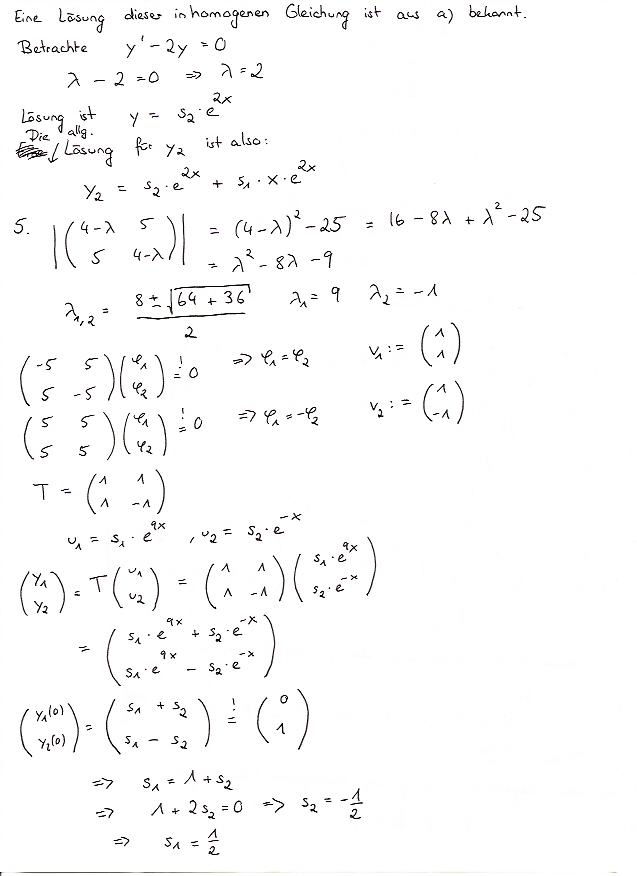 Eine Lösung dieser inhomogenen Gleichung ist aus a) bekannt.
Betrachte y' - 2y = 0
λ - 2 = 0 ⇒ λ = 2
Lösung ist y = s₂·e^{2x}
Die allg.
↓ Lösung für y₂ ist also:
y₂ = s₂·e^{2x} + s₁·x·e^{2x}
5. |(4-λ 5; 5 4-λ)| = (4-λ)² - 25 = 16 - 8λ + λ² - 25
= λ² - 8λ - 9
λ₁,₂ = (8 ± √(64 + 36))/2 λ₁ = 9 λ₂ = -1
(-5 5; 5 -5)(φ₁; φ₂) =! 0 ⇒ φ₁ = φ₂ v₁ := (1; 1)
(5 5; 5 5)(φ₁; φ₂) =! 0 ⇒ φ₁ = -φ₂ v₂ := (1; -1)
T = (1 1; 1 -1)
u₁ = s₁·e^{9x} , u₂ = s₂·e^{-x}
(y₁; y₂) = T(u₁; u₂) = (1 1; 1 -1)(s₁·e^{9x}; s₂·e^{-x})
= (s₁·e^{9x} + s₂·e^{-x}; s₁·e^{9x} - s₂·e^{-x})
(y₁(0); y₂(0)) = (s₁ + s₂; s₁ - s₂) =! (0; 1)
⇒ s₁ = 1 + s₂
⇒ 1 + 2s₂ = 0 ⇒ s₂ = -1/2
⇒ s₁ = 1/2